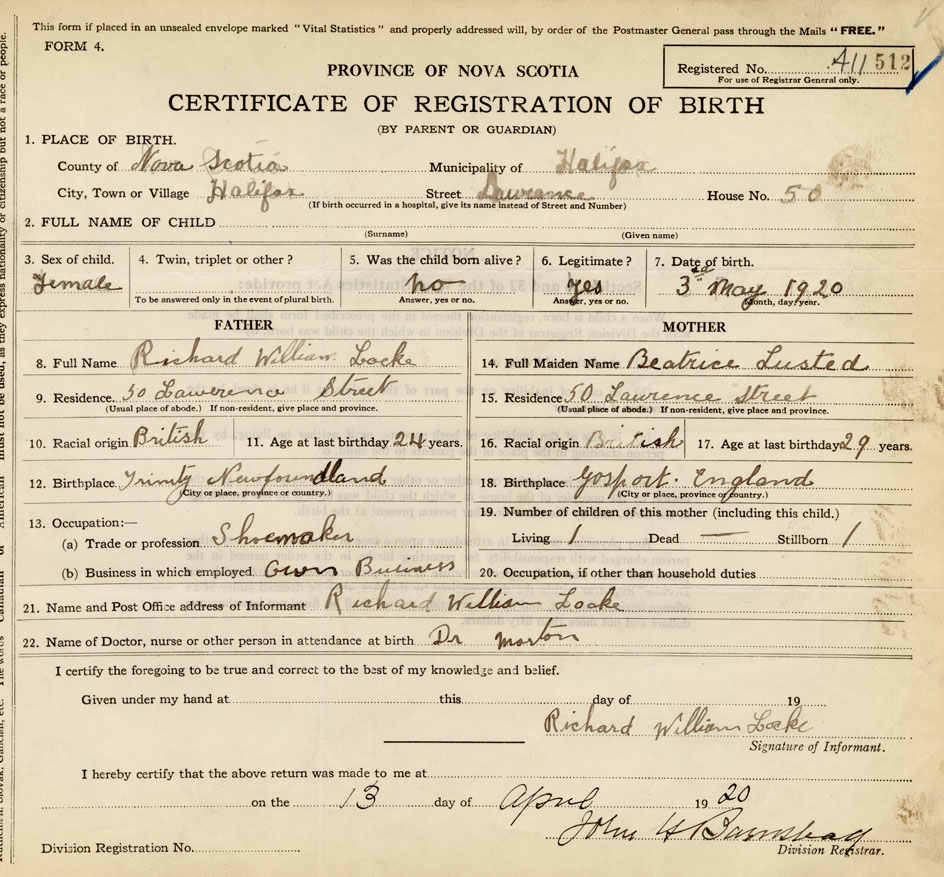 This form if placed in an unsealed envelope marked "Vital Statistics" and properly addressed will, by order of the Postmaster General pass through the Mails "FREE."
FORM 4.
PROVINCE OF NOVA SCOTIA
Registered No. 411 512
For use of Registrar General only.
CERTIFICATE OF REGISTRATION OF BIRTH
(BY PARENT OR GUARDIAN)
1. PLACE OF BIRTH.
County of Nova Scotia Municipality of Halifax
City, Town or Village Halifax Street Lawrance House No. 50
(If birth occurred in a hospital, give its name instead of Street and Number)
2. FULL NAME OF CHILD
(Surname) (Given name)
3. Sex of child. 4. Twin, triplet or other? 5. Was the child born alive? 6. Legitimate? 7. Date of birth.
Female no yes 3rd May 1920
To be answered only in the event of plural birth. Answer, yes or no. Answer, yes or no. Month, day, year.
FATHER MOTHER
8. Full Name Richard William Locke 14. Full Maiden Name Beatrice Lusted
9. Residence. 50 Lawerence Street 15. Residence 50 Lawrence Street
(Usual place of abode.) If non-resident, give place and province. (Usual place of abode.) If non-resident, give place and province.
10. Racial origin British 11. Age at last birthday 24 years. 16. Racial origin British 17. Age at last birthday 29 years.
12. Birthplace Trinity Newfoundland 18. Birthplace Gosport. England
(City or place, province or country.) (City or place, province or country.)
13. Occupation:— 19. Number of children of this mother (including this child.)
(a) Trade or profession Shoemaker Living 1 Dead — Stillborn 1
(b) Business in which employed Own Business 20. Occupation, if other than household duties
21. Name and Post Office address of Informant Richard William Locke
22. Name of Doctor, nurse or other person in attendance at birth Dr Morton
I certify the foregoing to be true and correct to the best of my knowledge and belief.
Given under my hand at this day of 19
Richard William Locke
Signature of Informant.
I hereby certify that the above return was made to me at
on the 13 day of April 1920
John H
Division Registrar.
Division Registration No.